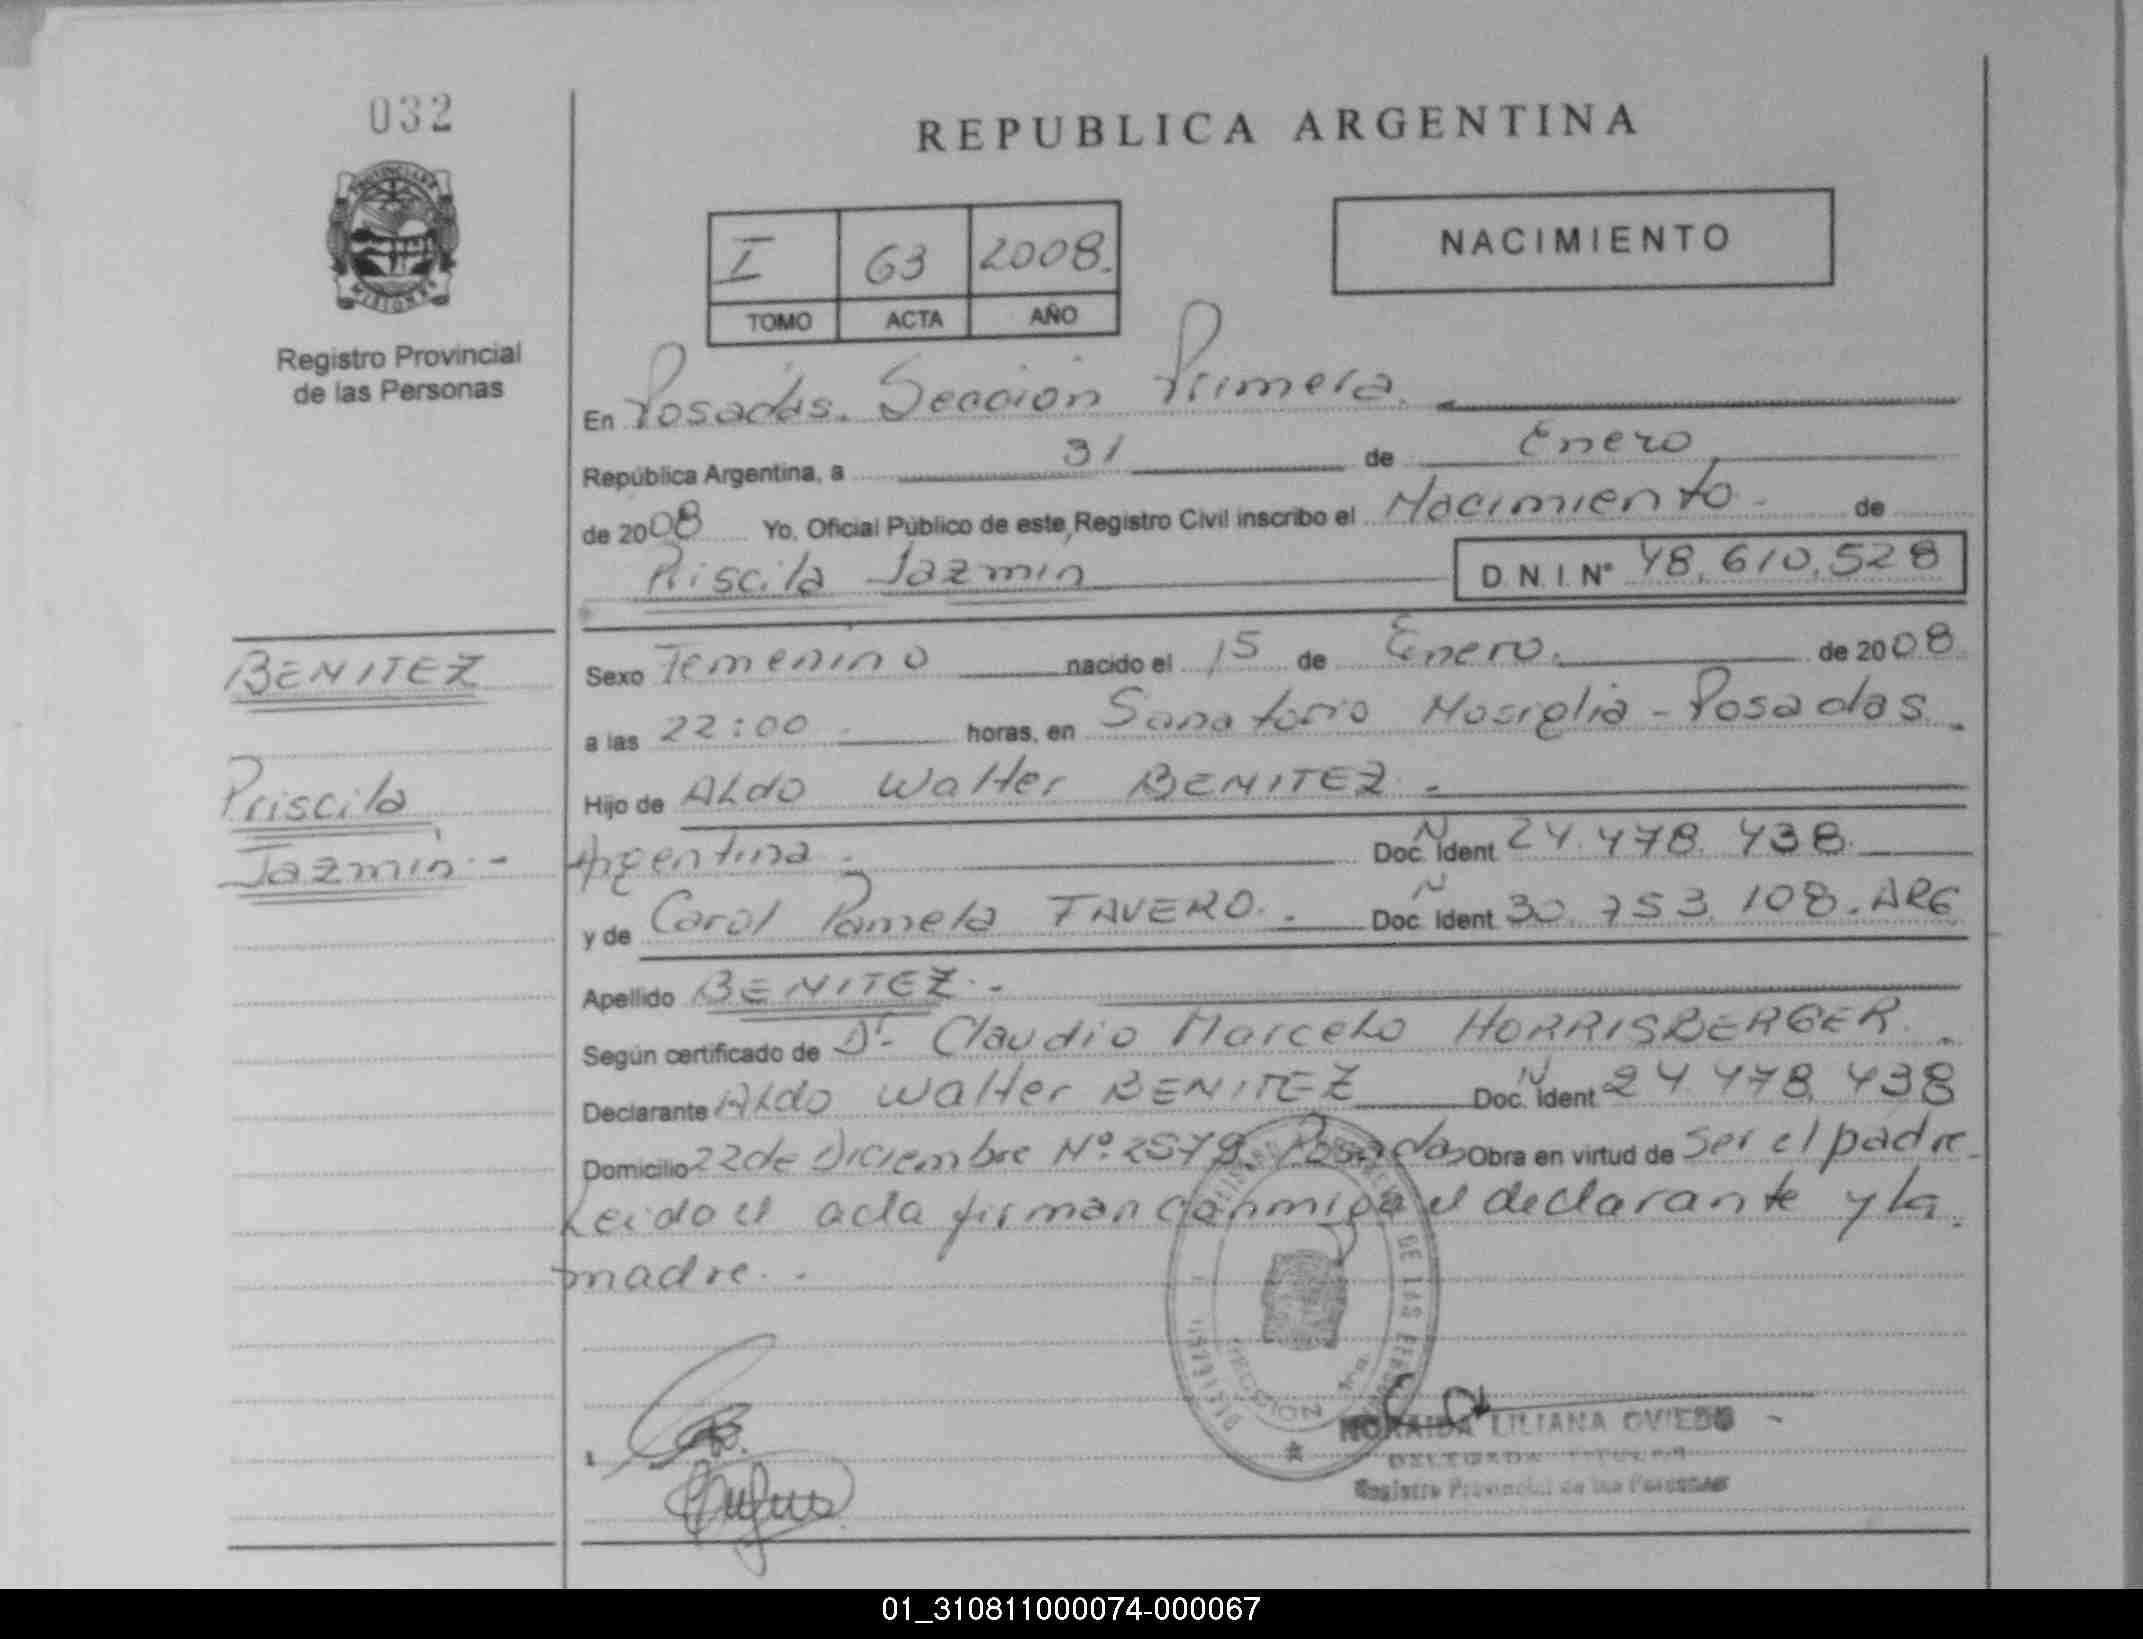 032
REPUBLICA ARGENTINA
PROVINCIA DE
MISIONES
I 63 2008.
TOMO ACTA AÑO
NACIMIENTO
Registro Provincial
de las Personas
En Posadas. Sección Primera.
República Argentina, a 31 de Enero
de 2008 Yo, Oficial Público de este Registro Civil inscribo el Nacimiento de
Priscila Jazmin D.N.I. N° 48.610.528
BENITEZ
Priscila
Jazmin.-
Sexo Femenino nacido el 15 de Enero. de 2008
a las 22:00 horas, en Sanatorio Nosiglia - Posadas.
Hijo de Aldo Walter BENITEZ.-
Argentina. Doc. N Ident 24.478.438.
y de Carol Pamela TAVERO.. Doc. N Ident 30.753.108. ARG
Apellido BENITEZ.-
Según certificado de Dr. Claudio Marcelo HORRISBERGER.
Declarante Aldo Walter BENITEZ Doc. N Ident 24.478.438
Domicilio 22 de Diciembre N° 2579. Posadas Obra en virtud de ser el padre.
Leido el acta firman conmigo el declarante y la
madre..
LILIANA OVIEDO
DELEGADA TITULAR
Registro Provincial de las Personas
01_310811000074-000067